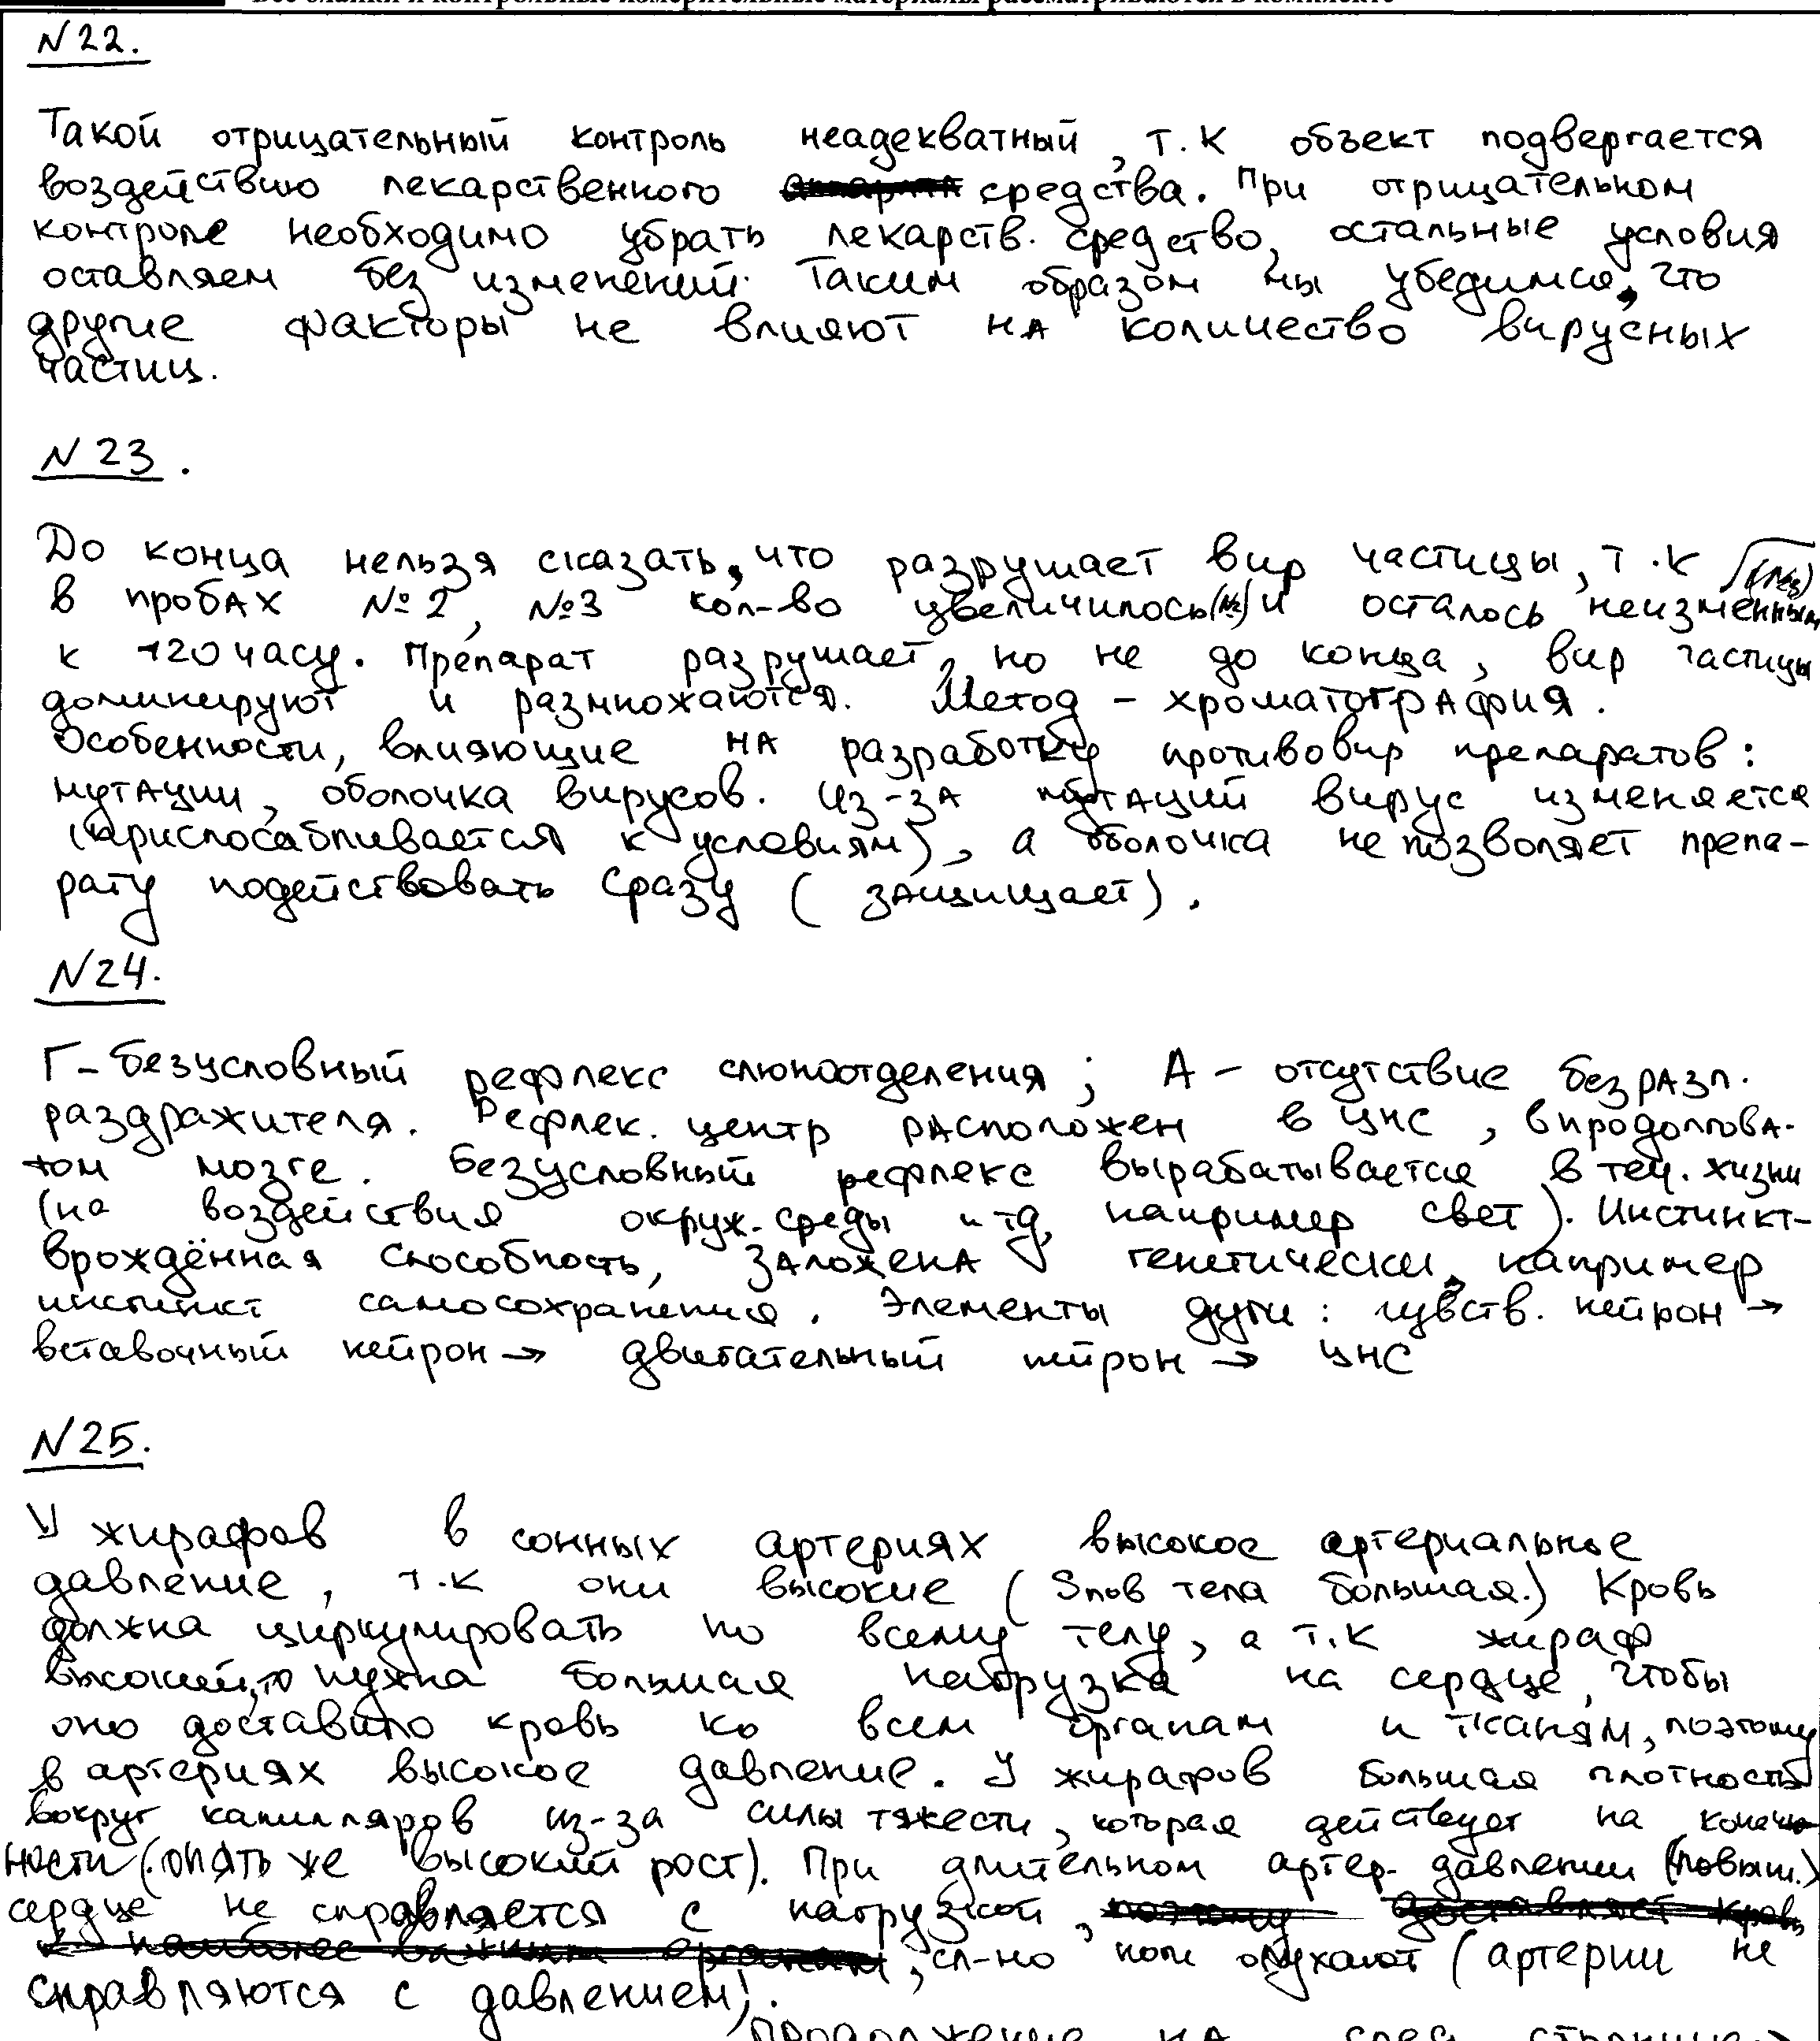 Все бланки и контрольные измерительные материалы рассматриваются в комплекте
N22.
Такой отрицательный контроль неадекватный, т.к объект подвергается
воздействию лекарственного средства. При отрицательном
контроле необходимо убрать лекарств. средство, остальные условия
оставляем без изменений. Таким образом мы убедимся, что
другие факторы не влияют на количество вирусных
частиц.
N23.
До конца нельзя сказать, что разрушает вир частицы, т.к (№3)
в пробах №2, №3 кол-во увеличилось(№2) и осталось неизменным
к 120 часу. Препарат разрушает, но не до конца, вир частицы
доминируют и размножаются. Метод - хроматография.
Особенности, влияющие на разработку противовир препаратов:
мутации, оболочка вирусов. Из-за мутаций вирус изменяется
(приспосабливается к условиям), а оболочка не позволяет препа-
рату подействовать сразу (защищает).
N24.
Г- безусловный рефлекс слюноотделения; А - отсутствие безразл.
раздражителя. Рефлек. центр расположен в ЦНС, в продолгова-
том мозге. Безусловный рефлекс вырабатывается в теч. жизни
(на воздействия окруж. среды и тд, например свет). Инстинкт-
врождённая способность, заложена генетически, например
инстинкт самосохранения. Элементы дуги: чувств. нейрон →
вставочный нейрон → двигательный нейрон → ЦНС
N25.
У жирафов в сонных артериях высокое артериальное
давление, т.к они высокие (Sпов тела большая.) Кровь
должна циркулировать по всему телу, а т.к жираф
высокий, то нужна большая нагрузка на сердце, чтобы
оно доставило кровь ко всем органам и тканям, поэтому
в артериях высокое давление. У жирафов большая плотность
вокруг капилляров из-за силы тяжести, которая действует на конеч
ности (опять же высокий рост). При длительном артер. давлении (повыш.)
сердце не справляется с нагрузкой,
сл-но ноги опухают (артерии не
справляются с давлением).
продолжение на след странице